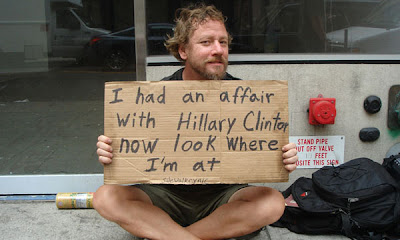 I had an affair
with Hillary Clinton
now look where
I'm at
STAND PIPE
OUT OFF VALVE
FEET
OPPOSITE THIS SIGN